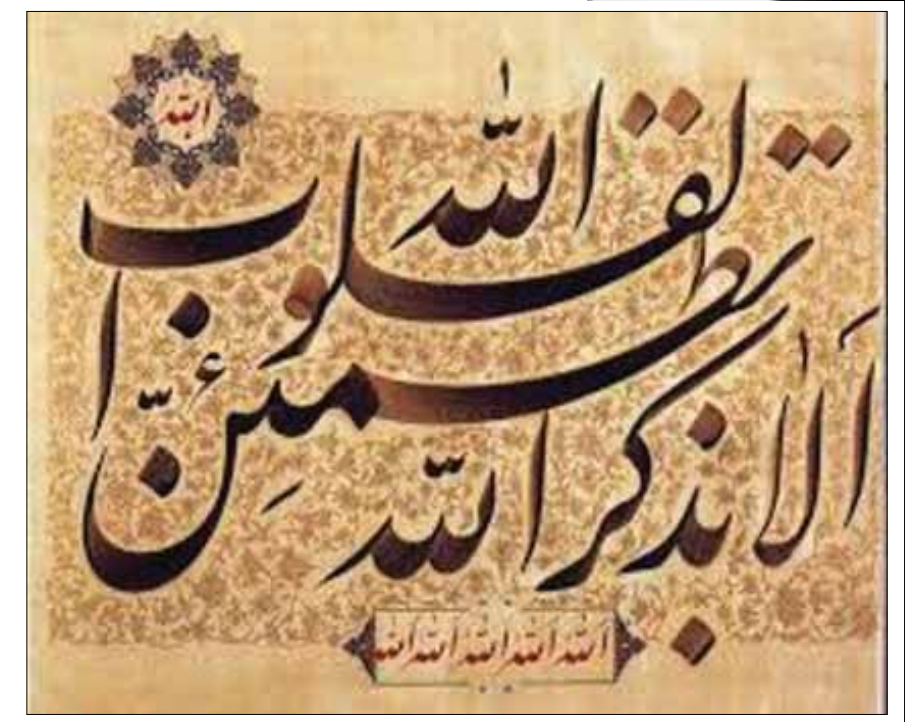 الله
الله
اَلا بذكر اللّه تطمئِنّ القلوب
الله الله الله الله الله